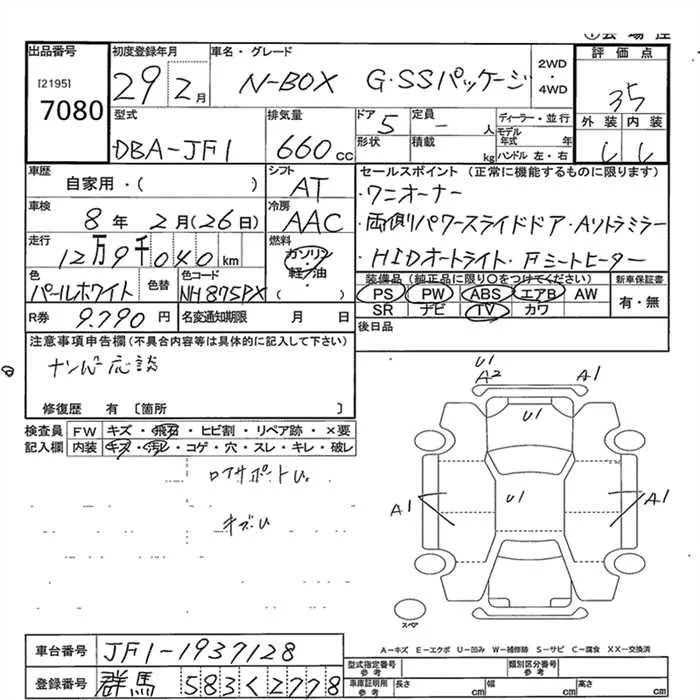 出品番号
[2195]
7080
初度登録年月
29年2月
車名・グレード
N-BOX G・SSパッケージ
2WD
・
4WD
評価点
35
外装 内装
型式
DBA-JF1
排気量
660cc
ドア 5
形状
定員 - 人
積載 kg
ディーラー・並行
モデル年式 年
ハンドル 左・右
車歴
自家用・( )
シフト
AT
車検
8年2月(26日)
冷房
AAC
走行
12万9千040km
燃料
ガソリン
軽油
( )
色
パールホワイト
色替
色コード
NH875PX
R券 9.790円
名変通知期限 月 日
セールスポイント (正常に機能するものに限ります)
・ワンオーナー
・両側パワースライドドア・Aソトラミラー
・HIDオートライト・Fシートヒーター
装備品 (純正品に限り○をつけてください)
PS PW ABS エアB AW
SR ナビ TV カワ
新車保証書
有・無
後日品
注意事項申告欄(不具合内容等は具体的に記入して下さい)
ナンバー応談
修復歴 有 〔箇所 〕
検査員記入欄
FW キズ・飛石・ヒビ割・リペア跡・×要
内装 キズ・汚レ・コゲ・穴・スレ・キレ・破レ
ロアサポートU
キズU
U1
A2
A1
U1
U1
A1
A1
スペア
A-キズ E-エクボ U-凹み W-補修跡 S-サビ C-腐食 XX-交換済
車台番号 JF1-1937128
登録番号 群馬 583く2778
型式指定番号
参考
類別区分番号
参考
車庫証明用
参考
長さ cm
幅 cm
高さ cm